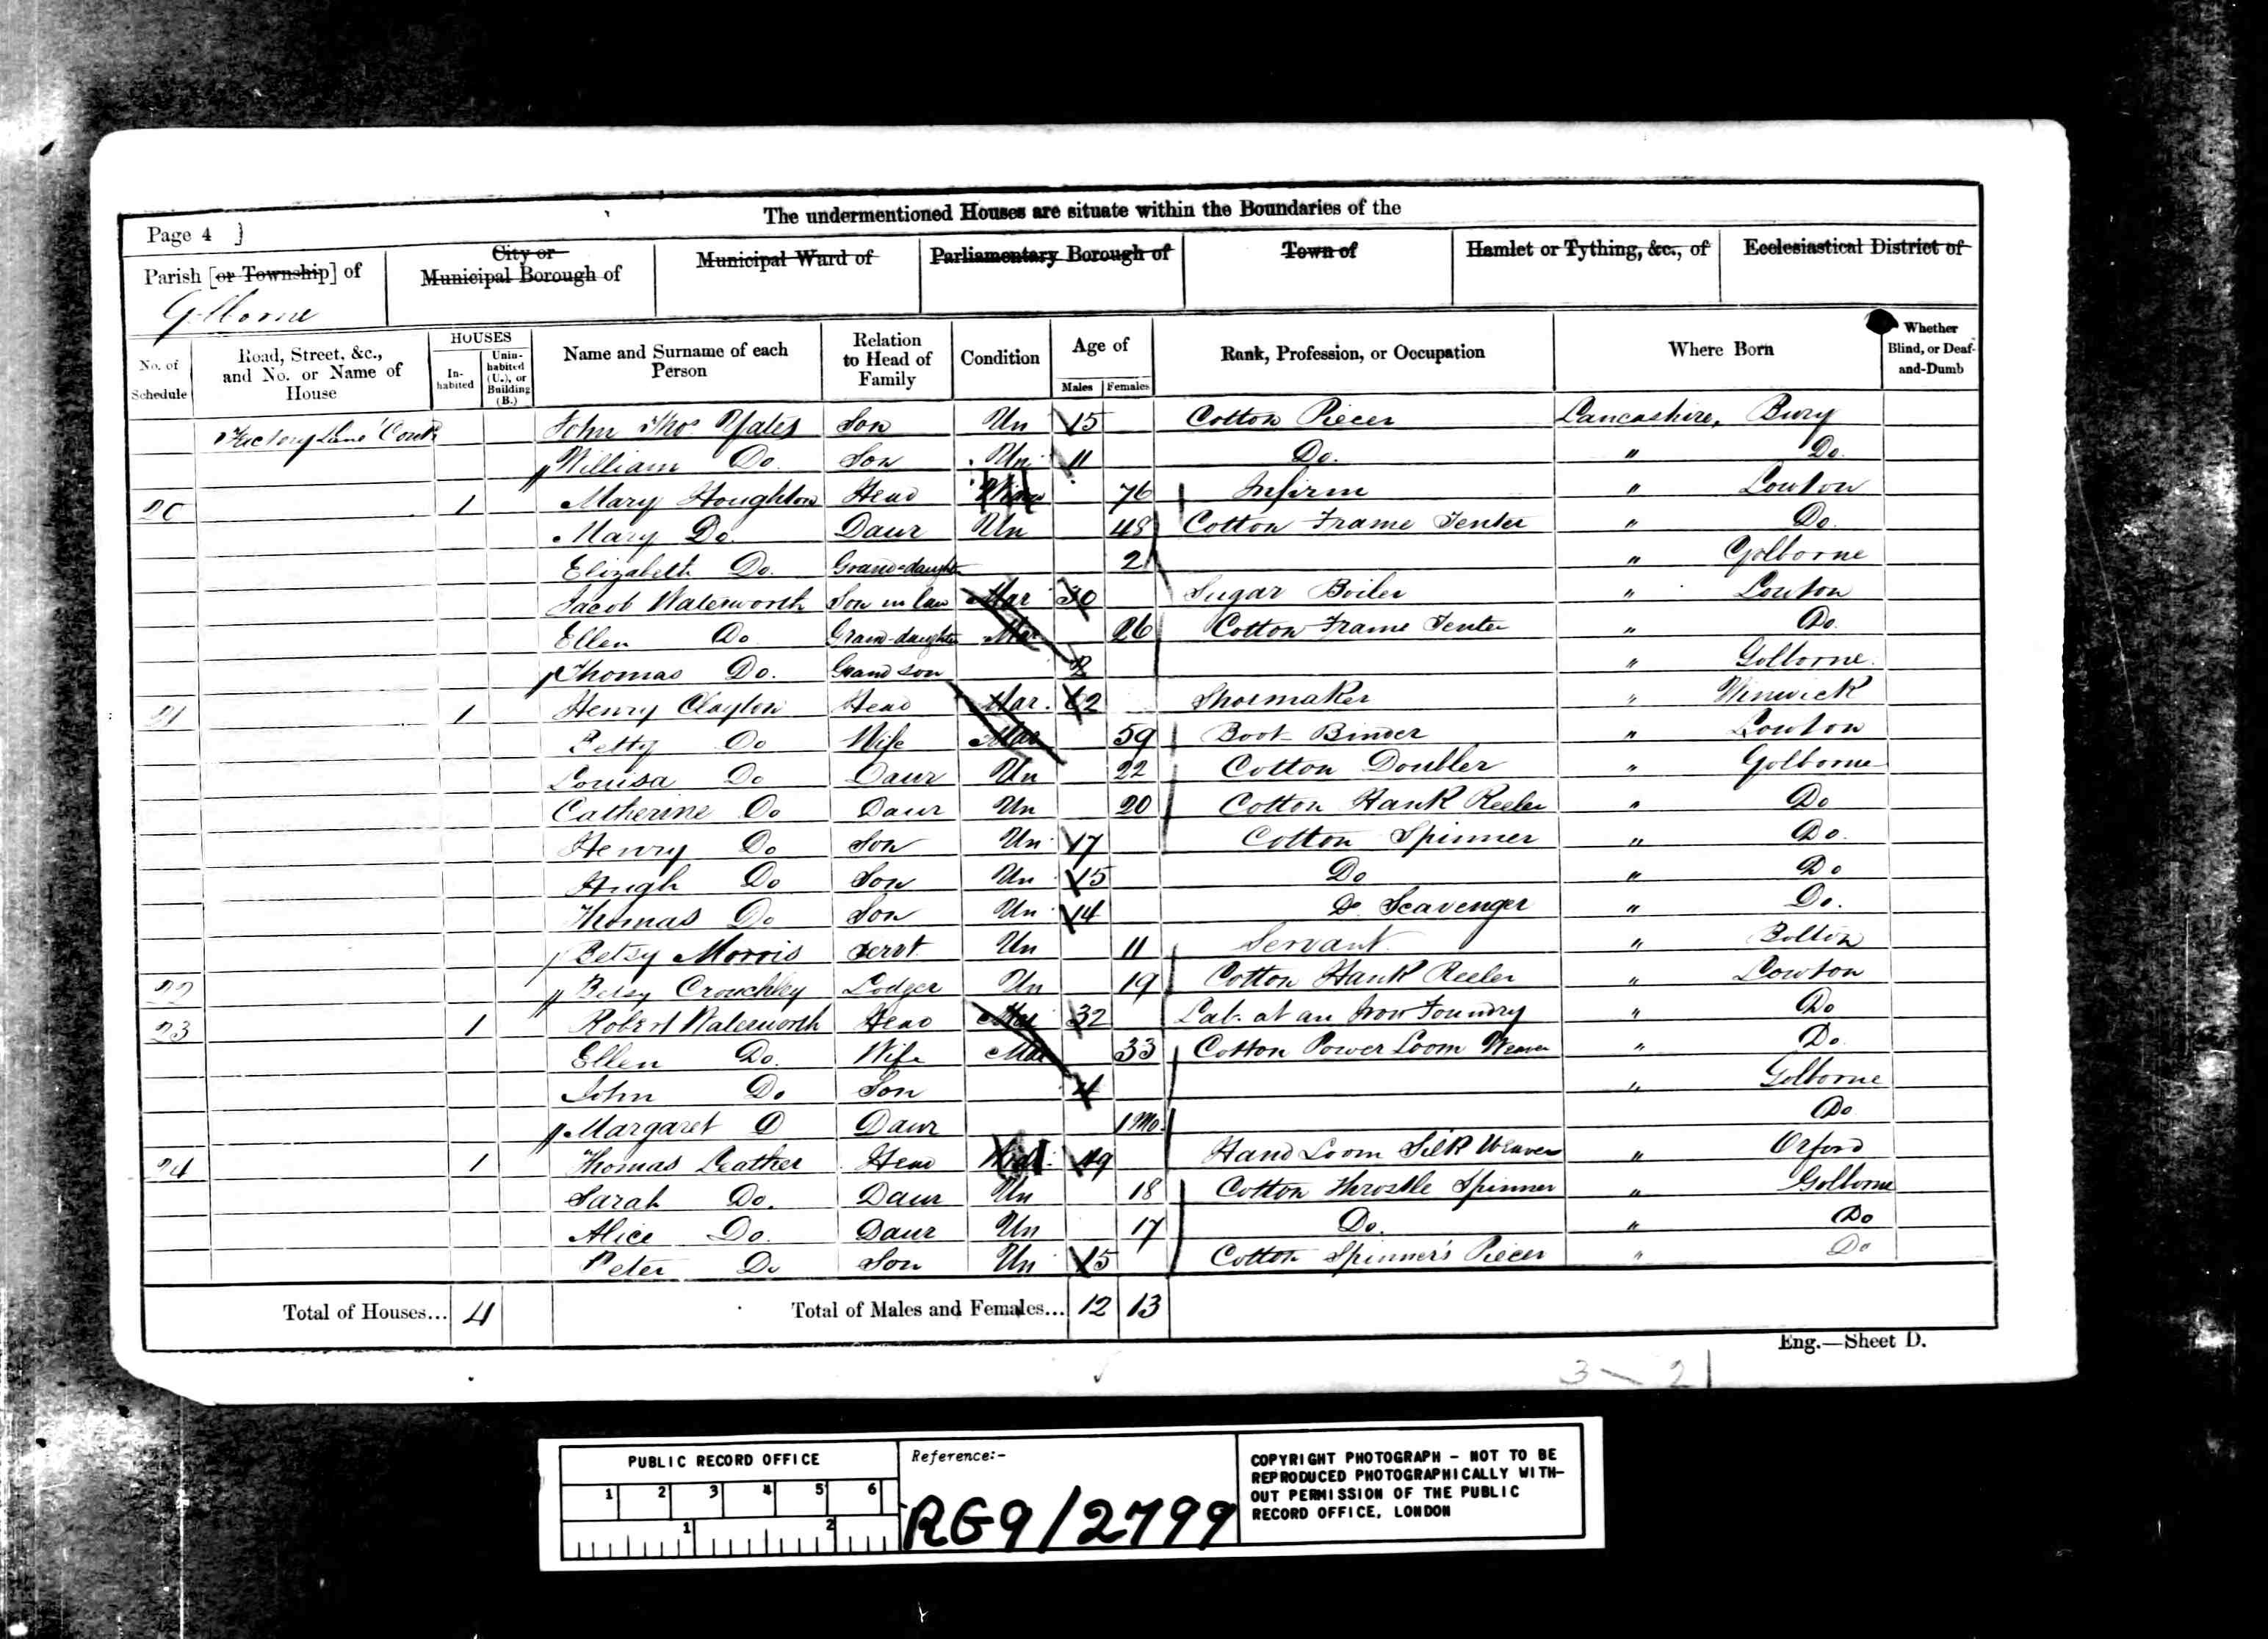 The undermentioned Houses are situate within the Boundaries of the
Page 4 ]
Parish [or Township] of
Golborne
City or
Municipal Borough of
Municipal Ward of
Parliamentary Borough of
Town of
Hamlet or Tything, &c., of
Ecclesiastical District of
No. of Schedule
Road, Street, &c., and No. or Name of House
HOUSES
In-habited
Unin-habited (U.), or Building (B.)
Name and Surname of each Person
Relation to Head of Family
Condition
Age of
Males Females
Rank, Profession, or Occupation
Where Born
Whether Blind, or Deaf-and-Dumb
Factory Lane Cont John Thos. Yates Son Un 15 Cotton Piecer Lancashire, Bury
William Do. Son Un 11 Do. " Do.
20 1 Mary Houghton Head 76 Infirm " Lowton
Mary Do. Daur Un 48 Cotton Frame Tenter " Do.
Elizabeth Do. Grand-daughter 2 " Golborne
Jacob Waterworth Son in law Mar 30 Sugar Boiler " Lowton
Ellen Do Grand-daughter Mar 26 Cotton Frame Tenter " Do.
Thomas Do. Grand son 2 " Golborne.
21 1 Henry Clayton Head Mar. 62 Shoemaker " Winwick
Betty Do Wife Mar 59 Boot Binder " Lowton
Louisa Do Daur Un 22 Cotton Doubler " Golborne
Catherine Do Daur Un 20 Cotton Hank Reeler " Do
Henry Do Son Un 17 Cotton Spinner " Do.
Hugh Do Son Un 15 Do " Do
Thomas Do Son Un 14 Do Scavenger " Do.
Betsy Morris Servt. Un 11 Servant " Bolton
22 Betsy Crouchley Lodger Un 19 Cotton Hank Reeler " Lowton
23 1 Robert Waterworth Head Mar 32 Lab. at an Iron Foundry " Do
Ellen Do. Wife Mar 33 Cotton Power Loom Weaver " Do.
John Do Son 4 " Golborne
Margaret D Daur 1 Mo. Do
24 1 Thomas Leather Head Widr. 49 Hand Loom Silk Weaver " Orford
Sarah Do. Daur Un 18 Cotton Throstle Spinner " Golborne
Alice Do. Daur Un 17 Do. " Do
Peter Do Son Un 15 Cotton Spinner's Piecer " Do
Total of Houses... 4 Total of Males and Females... 12 13
Eng.—Sheet D.
3 21
PUBLIC RECORD OFFICE
1 2 3 4 5 6
1 2
Reference:-
RG9/2799
COPYRIGHT PHOTOGRAPH - NOT TO BE
REPRODUCED PHOTOGRAPHICALLY WITH-
OUT PERMISSION OF THE PUBLIC
RECORD OFFICE, LONDON